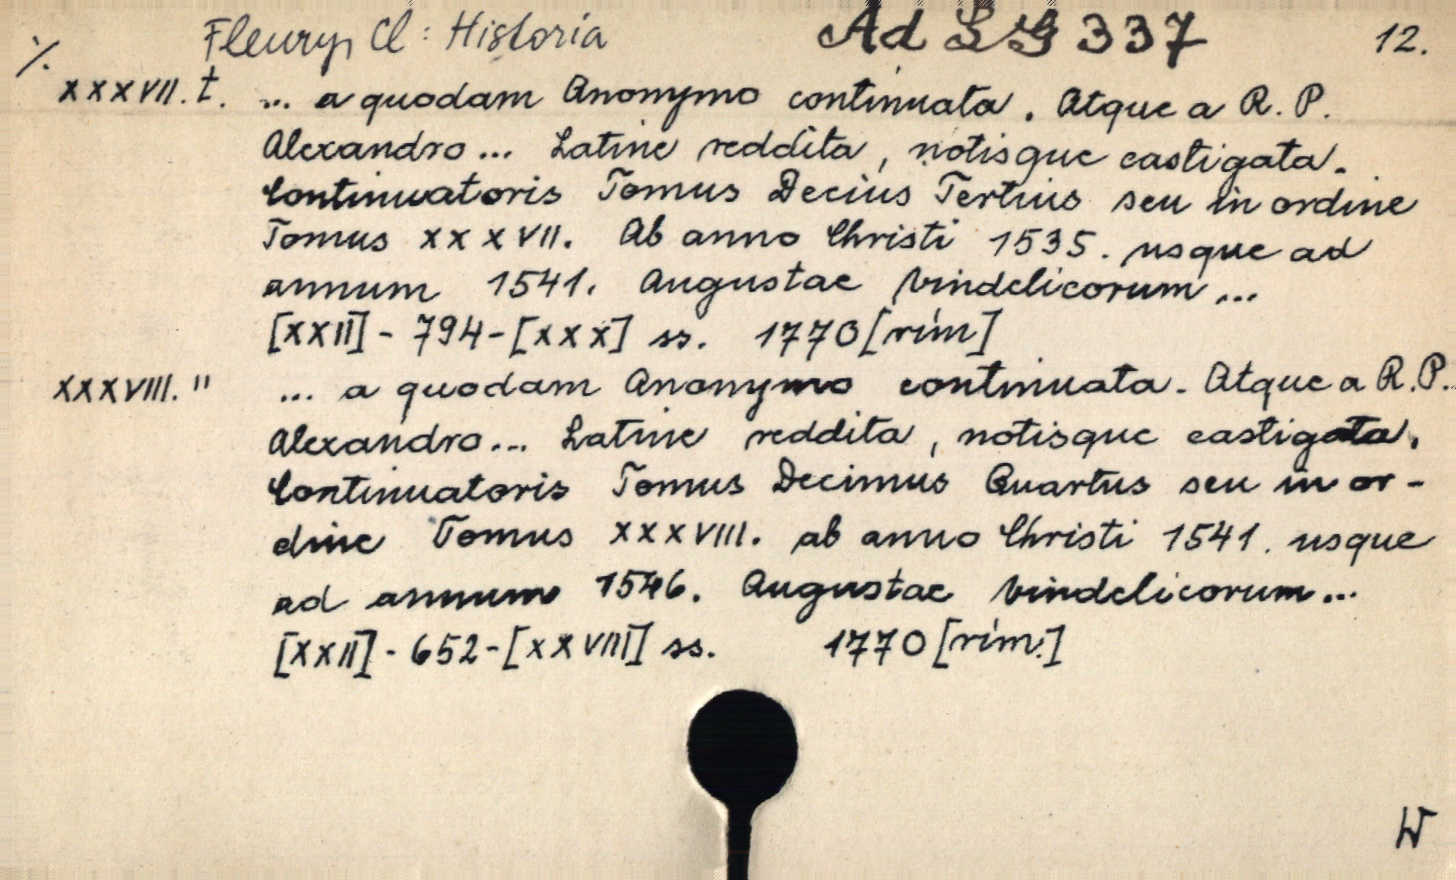 ·/. Fleury, Cl: Historia Ad LG 337 12.
XXXVII. t. ... a quodam Anonymo continuata. Atque a R. P.
Alexandro... Latine reddita, notisque castigata.
Continuatoris Tomus Decius Tertius seu in ordine
Tomus XXXVII. Ab anno Christi 1535. usque ad
annum 1541. Augustae Vindelicorum...
[XXII] - 794 - [XXX] ss. 1770 [rím]
XXXVIII. " ... a quodam Anonymo continuata. Atque a R. P.
Alexandro... Latine reddita, notisque castigata.
Continuatoris Tomus Decimus Quartus seu in or-
dine Tomus XXXVIII. ab anno Christi 1541. usque
ad annum 1546. Augustae Vindelicorum...
[XXII] - 652 - [XXVIII] ss. 1770 [rím.]
W